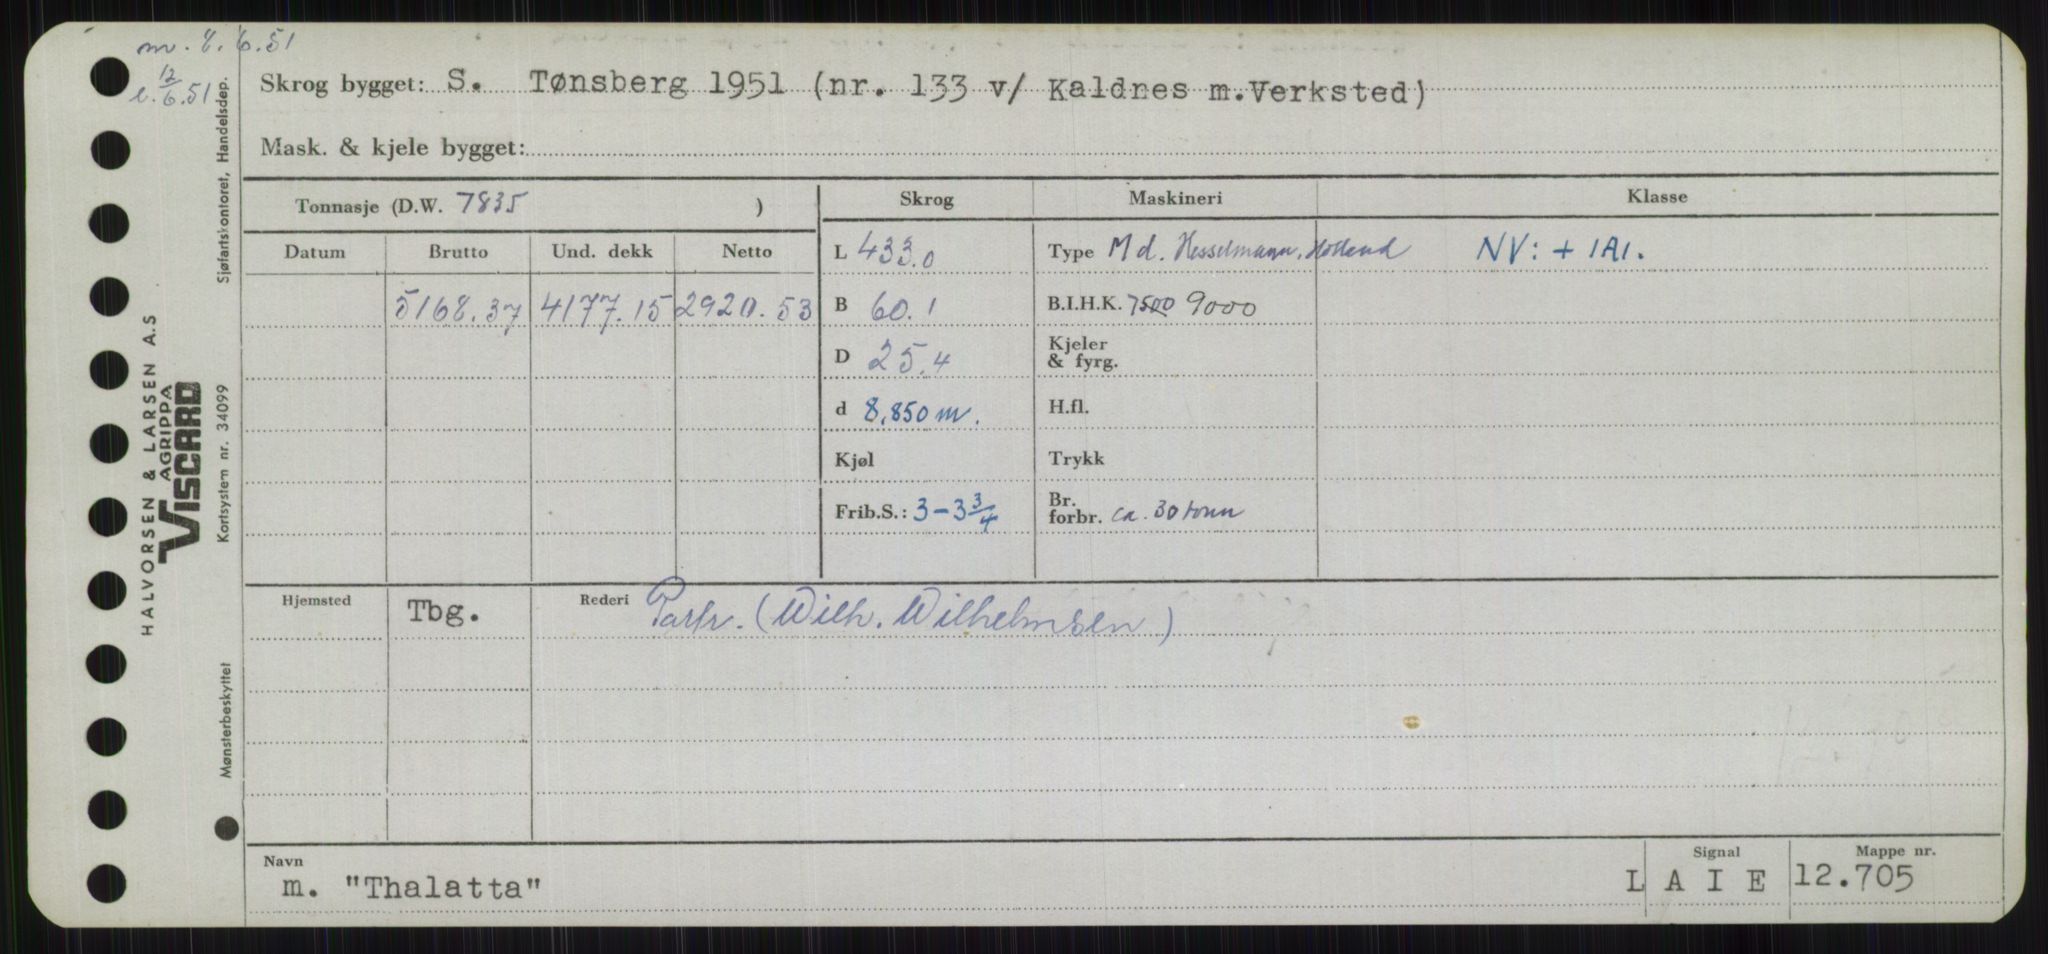 m. 8.6.51
l. 12/6.51
Skrog bygget: S. Tønsberg 1951 (nr. 133 v/ Kaldnes m.Verksted)
Mask. & kjele bygget:
Tonnasje (D.W. 7835 )
Skrog Maskineri Klasse
Datum Brutto Und. dekk Netto
L 433.0 Type Md. Hesselmann, Holland NV: + 1A1.
5168.37 4177.15 2920.53 B 60.1 B.I.H.K. 7500 9000
D 25.4 Kjeler & fyrg.
d 8.850 m. H.fl.
Kjøl Trykk
Frib.S.: 3-3 3/4 Br. forbr. ca. 30 tonn
Hjemsted Tbg. Rederi Partr. (Wilh. Wilhelmsen)
Navn m. "Thalatta" Signal L A I E Mappe nr. 12.705
HALVORSEN & LARSEN A.S
AGRIPPA
VISCARD
Mønsterbeskyttet Kortsystem nr. 34099 Sjøfartskontoret, Handelsdep.